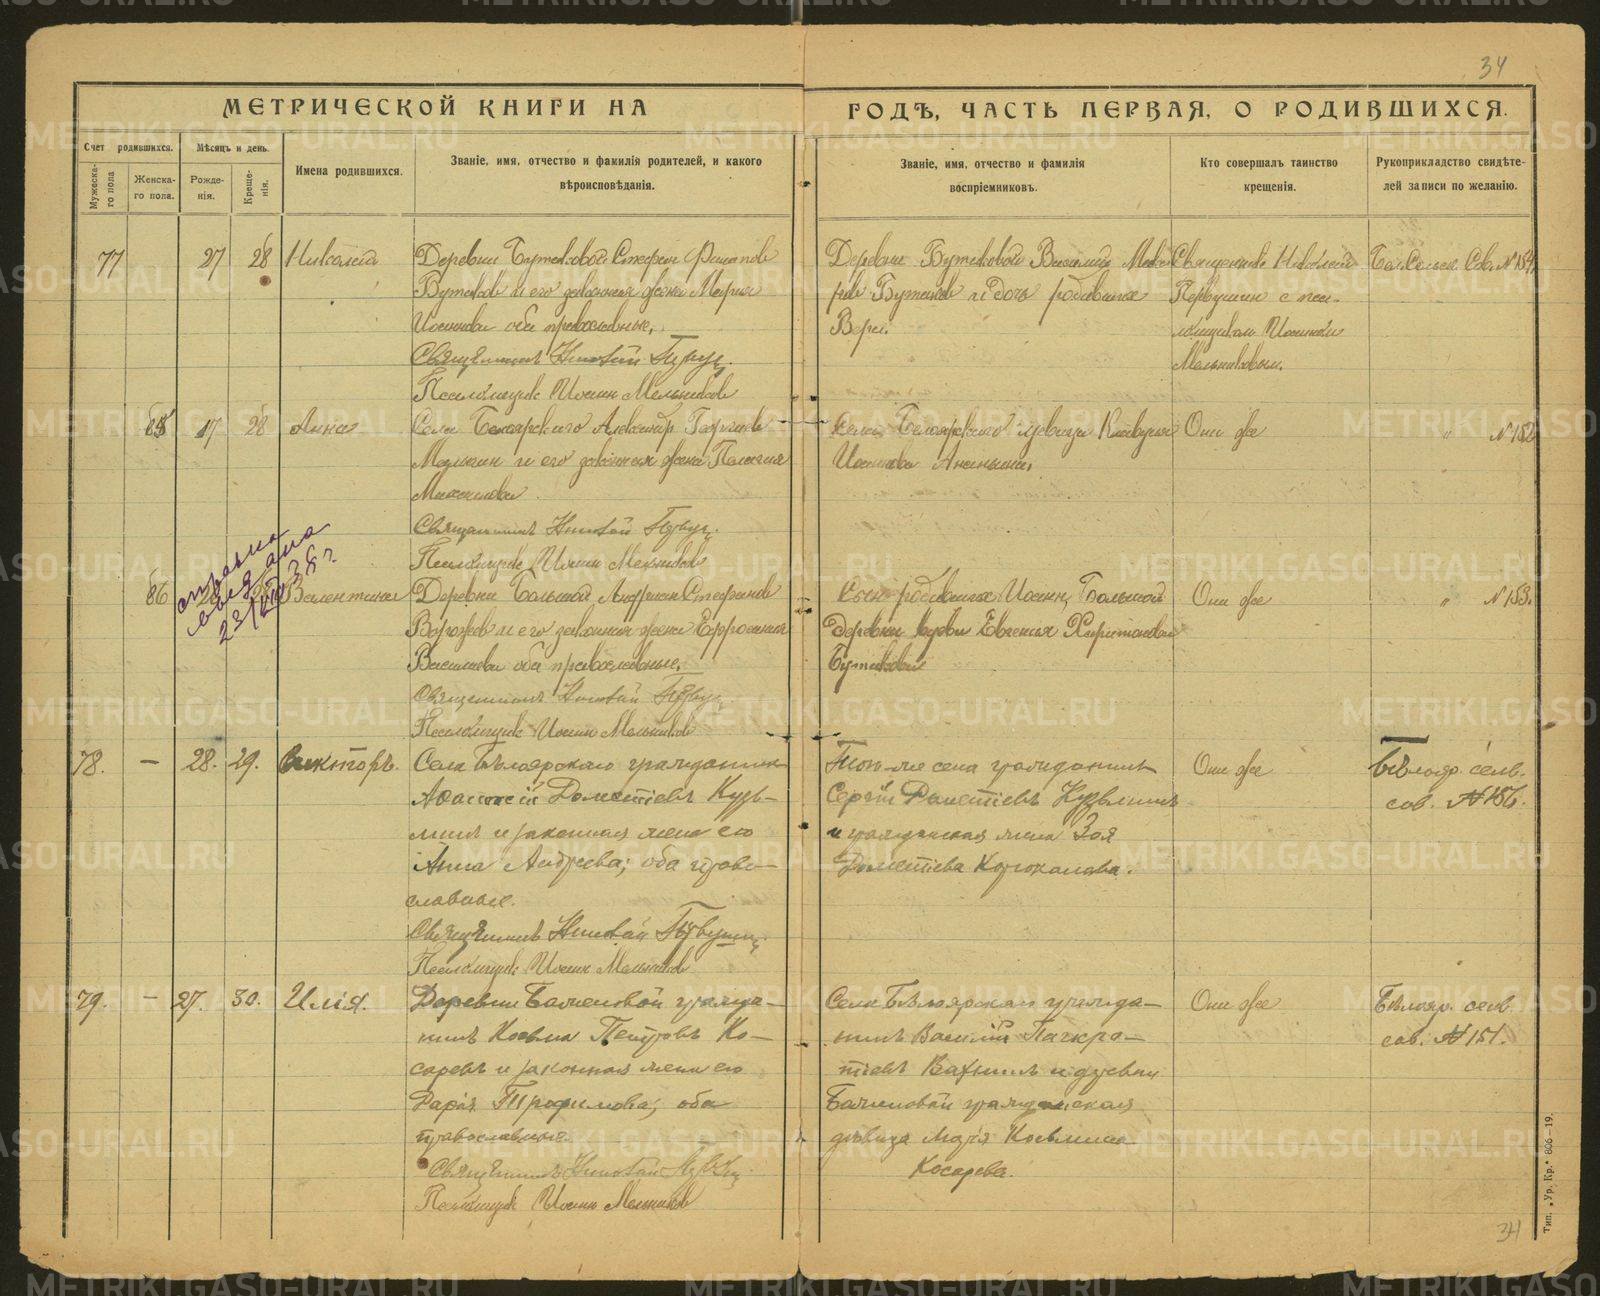 34
МЕТРИЧЕСКОЙ КНИГИ НА
ГОДЪ, ЧАСТЬ ПЕРВАЯ, О РОДИВШИХСЯ.
Счет родившихся.
Мужеска-
го пола
Женска-
го пола.
Мѣсяцъ и день.
Рожде-
нія.
Креще-
нія.
Имена родившихся.
Званіе, имя, отчество и фамилія родителей, и какого
вѣроисповѣданія.
Званіе, имя, отчество и фамилія
воспріемниковъ.
Кто совершалъ таинство
крещенія.
Рукоприкладство свидѣте-
лей записи по желанію.
77 27 28 Николай
Деревни Бутаковой Стефан
Бутаков и его законная жена Мария
Иоаннова оба православные.
Священникъ Николай
Псаломщик Иоанн Мельников
Деревни Бутаковой Василий
Бутаков и дочь родившая
Вера.
Священник Николай
Первушин с пса-
ломщиком Иоанном
Мельниковым.
Бел. Сельск. Сов. № 154
85 17 28 Анна
Села Белоярского Александр Георгиев
и его законная жена Пелагия
Михайлова
Священникъ Николай
Псаломщик Иоанн Мельников
Села Белоярского девица Клавдия
Иоаннова Ананьина.
Они же
" № 152
справка
выдана
23/VIII 38 г.
86 Валентина
Деревни Большой Стефанов
и его законная жена Ефросиния
Василиева оба православные.
Священникъ Николай
Псаломщик Иоанн Мельников
Сын Иоанн, Большой
деревни вдова Евгения
Бутакова
Они же
" № 153.
78. — 28. 29. Викторъ.
Села Бѣлоярскаго гражданинъ
Афанасій Дометіевъ Кузь-
минъ и законная жена его
Анна Андреева; оба право-
славные.
Священникъ Николай Первушин
Псаломщик Иоанн Мельников
Того-же села гражданинъ
Сергій Дометіевъ Кузьминъ
и гражданская жена Зоя
Дометіева
Они же
Бѣлояр. сельв.
сов. № 156.
79. — 27. 30. Илія.
Деревни Баженовой гражда-
нинъ Косьма Петровъ Ко-
саревъ и законная жена его
Дарія Трофимова; оба
православные.
Священникъ Николай
Псаломщик Иоанн Мельников
Села Бѣлоярскаго гражда-
нинъ Василій Панкра-
тіевъ и деревни
Баженовой гражданская
дѣвица Марія Косьмина
Косарева.
Они же
Бѣлояр. сельв.
сов. № 151.
Тип. „Ур. Кр." 606—19.
34
METRIKI.GASO-URAL.RU